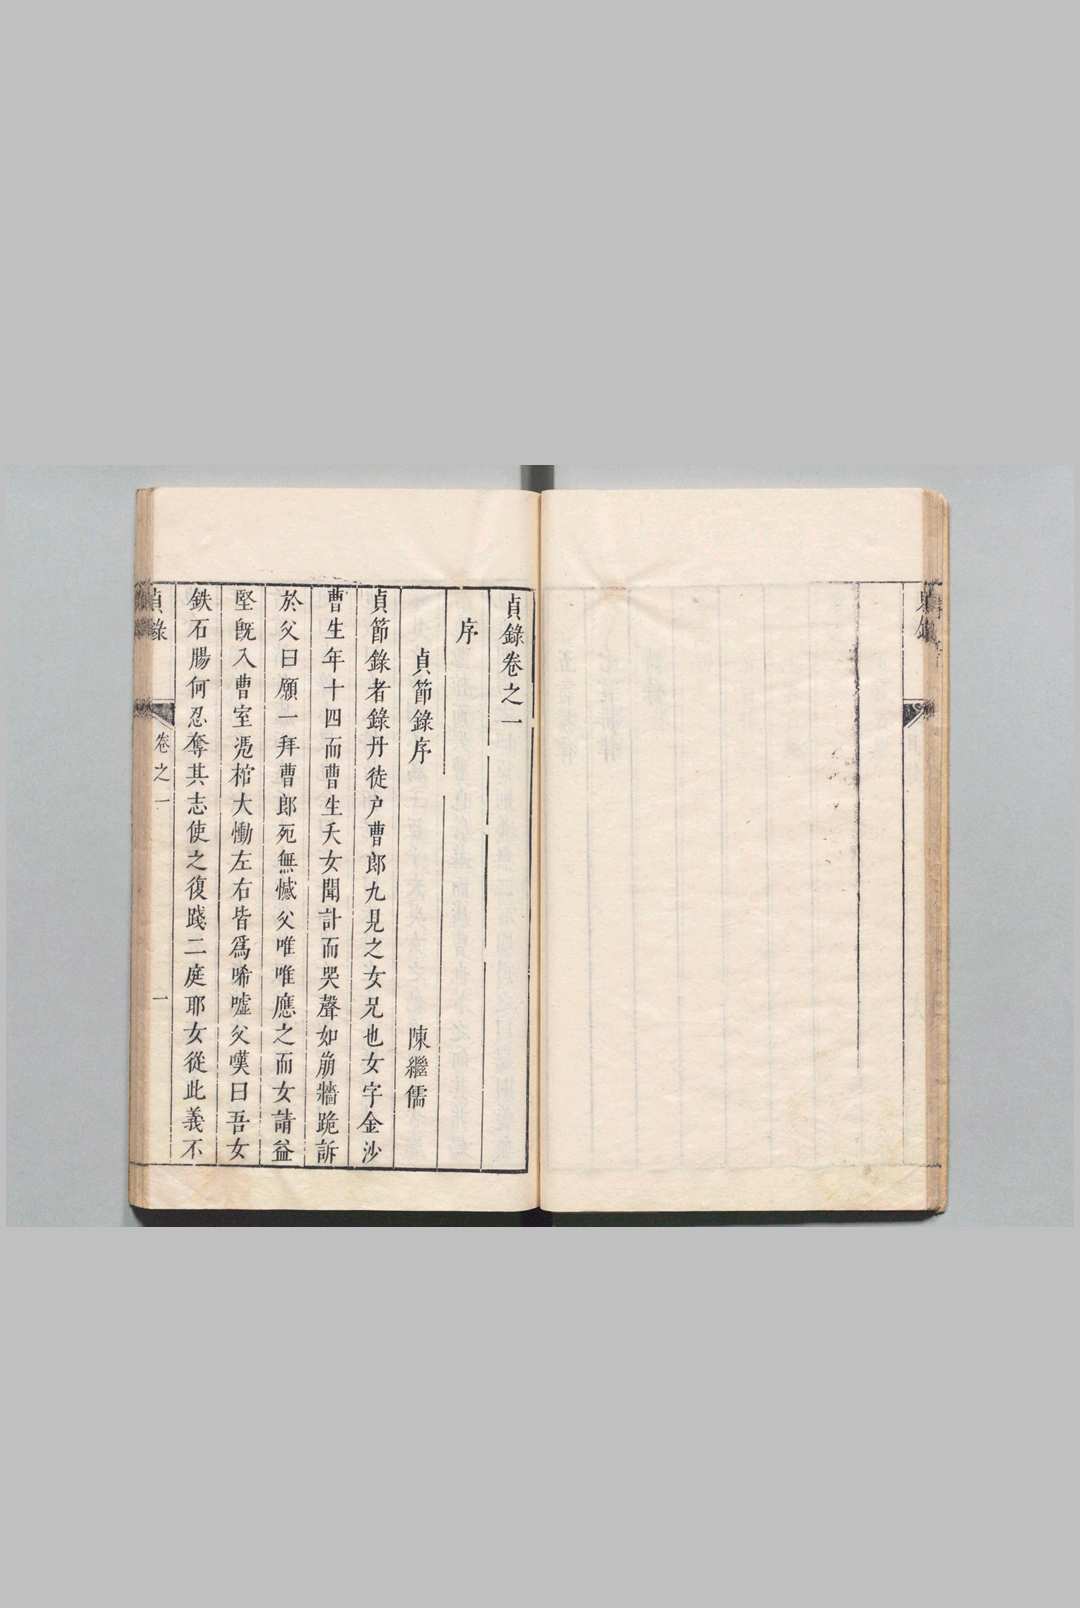 貞錄卷之一
序
貞節錄序
陳繼儒
貞節錄者錄丹徒户曹郎九見之女兄也女字金沙
曹生年十四而曹生夭女聞訃而哭聲如崩牆跪訴
於父曰願一拜曹郎死無憾父唯唯應之而女請益
堅旣入曹室凴棺大慟左右皆爲唏噓父嘆曰吾女
鉄石腸何忍奪其志使之復踐二庭耶女從此義不
貞錄
卷之一
一